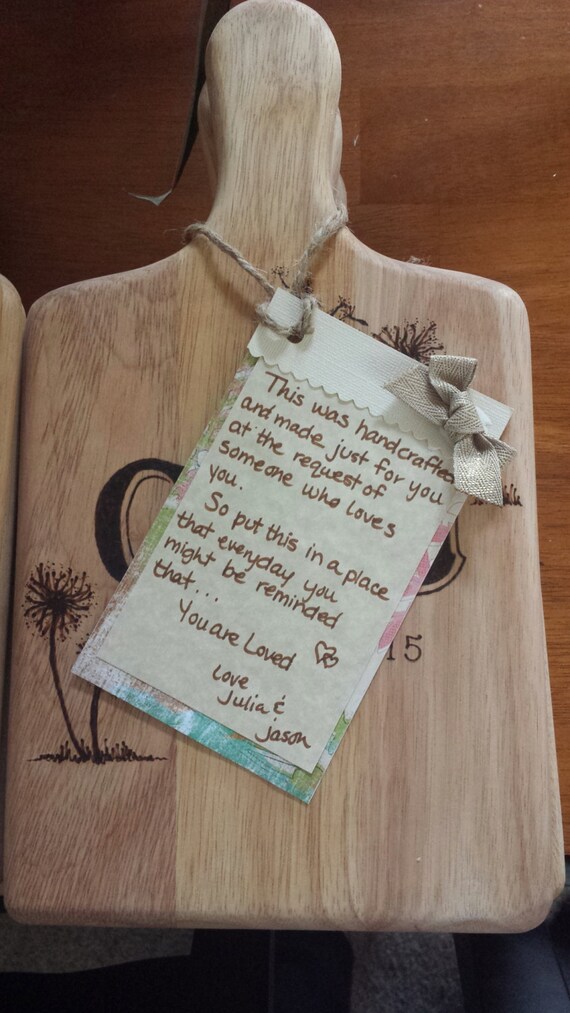 This was handcrafted
and made just for you
at the request of
someone who loves
you.
So put this in a place
that everyday you
might be reminded
that...
You are Loved
Love
Julia &
Jason
15